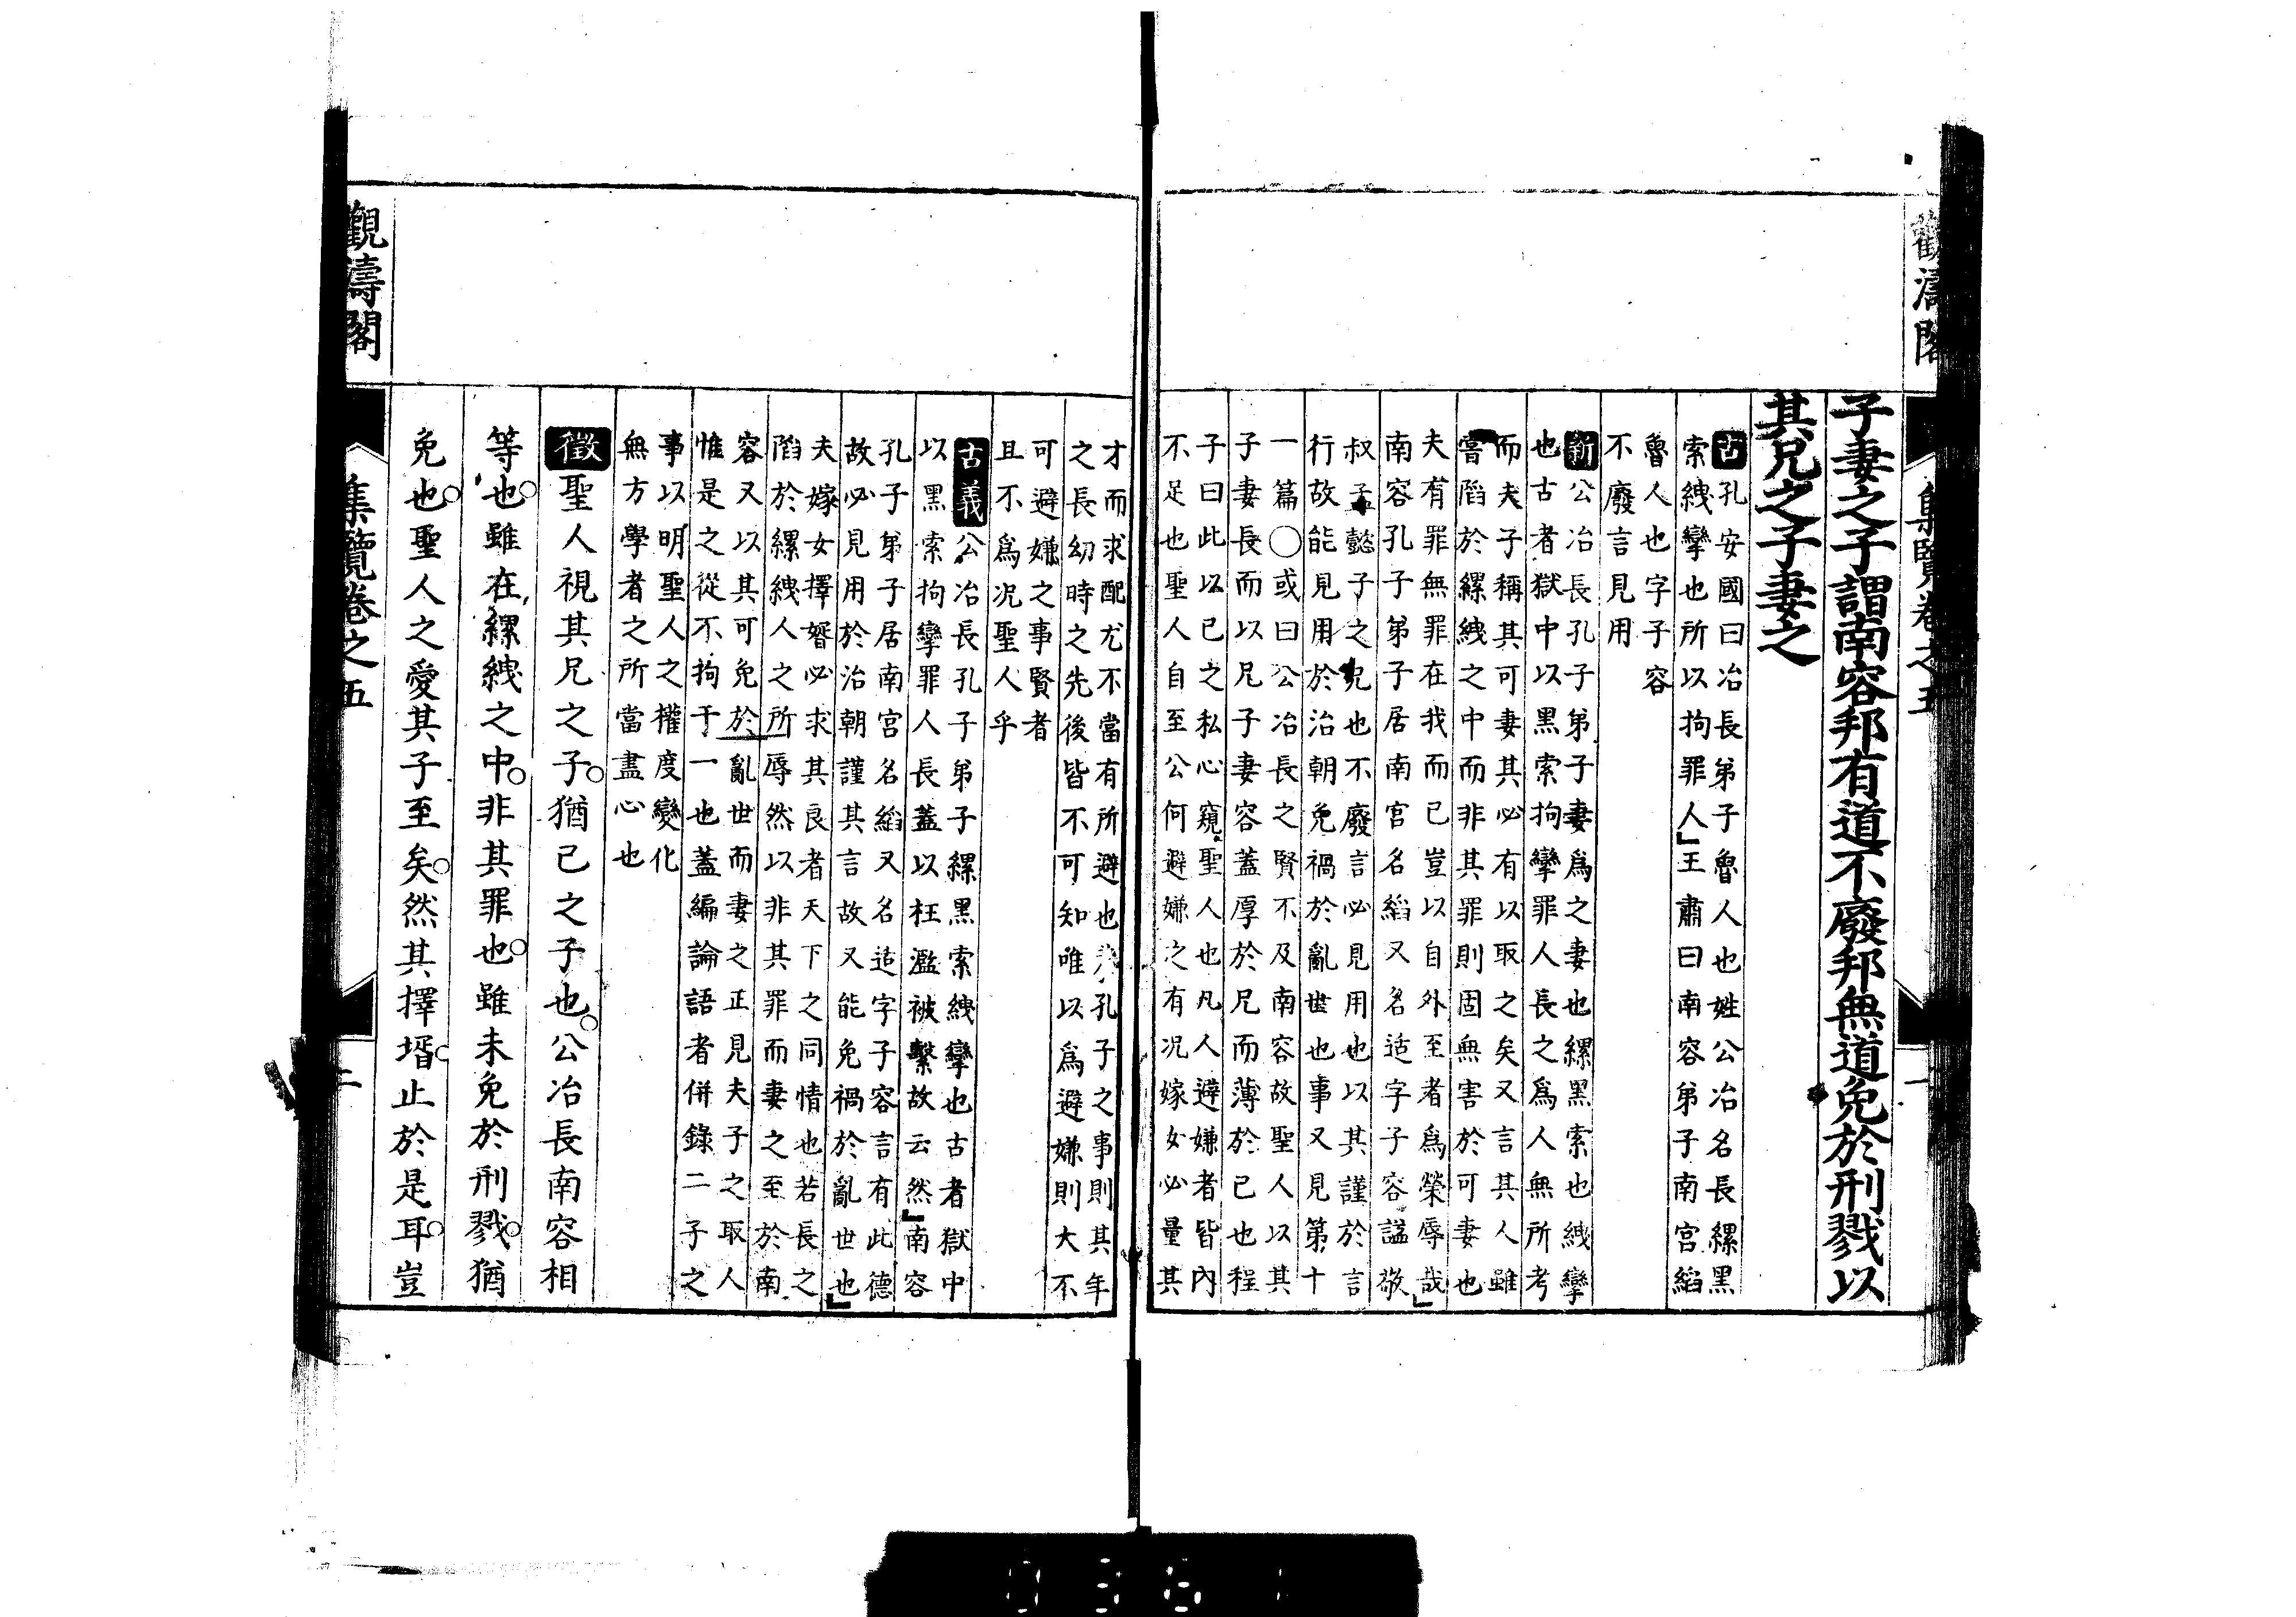 觀濤閣
集覽卷之五
一
子妻之子謂南容邦有道不廢邦無道免於刑戮以
其兄之子妻之
古孔安國曰冶長弟子魯人也姓公冶名長縲黑
索絏攣也所以拘罪人」王肅曰南容弟子南宮縚
魯人也字子容
不廢言見用
新公冶長孔子弟子妻爲之妻也縲黑索也絏攣
也古者獄中以黑索拘攣罪人長之爲人無所考
而夫子稱其可妻其必有以取之矣又言其人雖
嘗陷於縲絏之中而非其罪則固無害於可妻也
夫有罪無罪在我而已豈以自外至者爲榮辱哉」
南容孔子弟子居南宮名縚又名适字子容諡敬
叔子懿子之兄也不廢言必見用也以其謹於言
行故能見用於治朝免禍於亂世也事又見第十
一篇○或曰公冶長之賢不及南容故聖人以其
子妻長而以兄子妻容蓋厚於兄而薄於已也程
子曰此以已之私心窺聖人也凡人避嫌者皆內
不足也聖人自至公何避嫌之有况嫁女必量其
才而求配尤不當有所避也孔子之事則其年
之長幼時之先後皆不可知唯以爲避嫌則大不
可避嫌之事賢者
且不爲况聖人乎
古義公冶長孔子弟子縲黑索絏攣也古者獄中
以黑索拘攣罪人長蓋以枉濫被繫故云然」南容
孔子弟子居南宮名縚又名适字子容言有此德
故必見用於治朝謹其言故又能免禍於亂世也」
夫嫁女擇婿必求其良者天下之同情也若長之
陷於縲絏人之所辱然以非其罪而妻之至於南
容又以其可免於亂世而妻之正見夫子之取人
惟是之從不拘于一也蓋編論語者併錄二子之
事以明聖人之權度變化
無方學者之所當盡心也
徵聖人視其兄之子○猶己之子也○公冶長南容相
等也○雖在縲絏之中○非其罪也○雖未免於刑戮○猶
免也○聖人之愛其子至矣○然其擇壻○止於是耳○豈
觀濤閣
集覽卷之五
二
0361